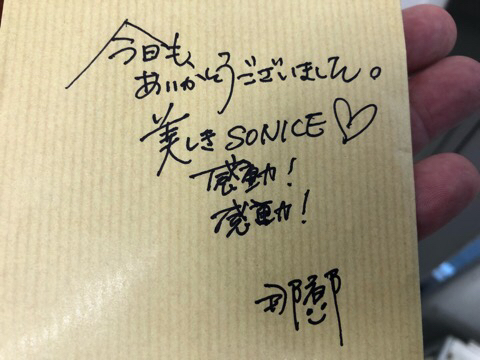 今日も、
ありがとうございました。
美しき SONICE♡
感動!
感動!
那都